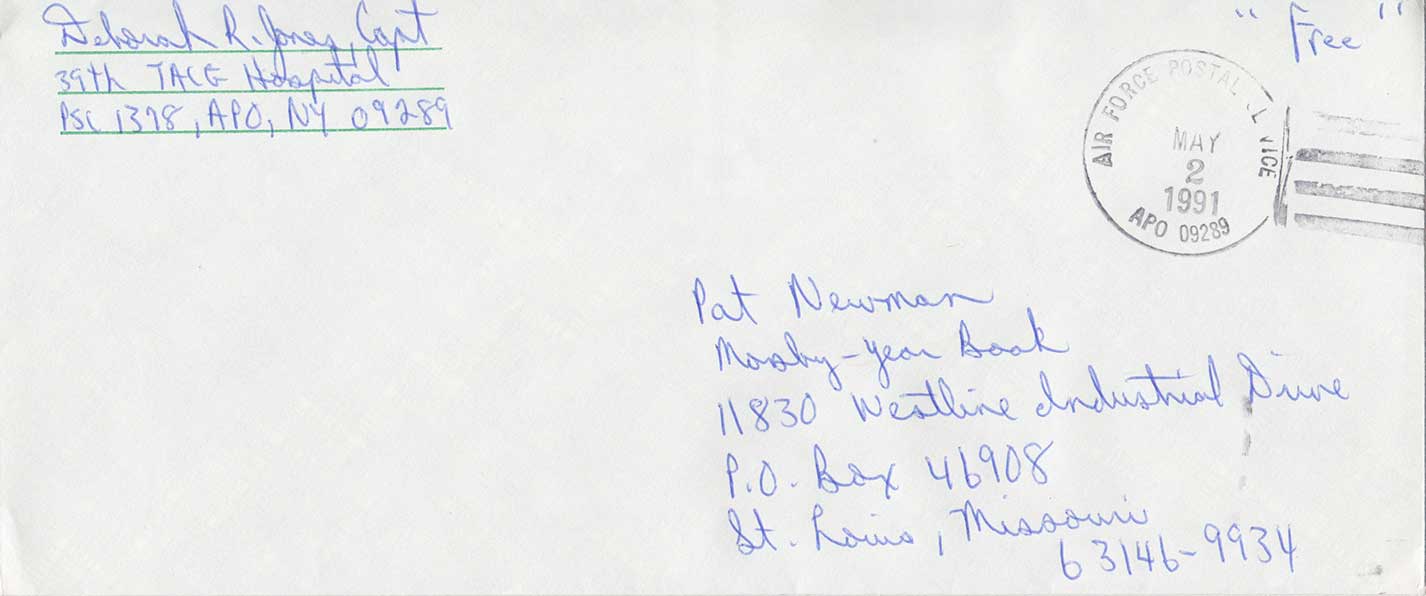 Deborah R. Jones, Capt
39th TACG Hospital
PSC 1378, APO, NY 09289
"Free"
AIR FORCE POSTAL
MAY
2
1991
APO 09289
Pat Newman
Mosby-Year Book
11830 Westline Industrial Drive
P.O. Box 46908
St. Louis, Missouri
63146-9934